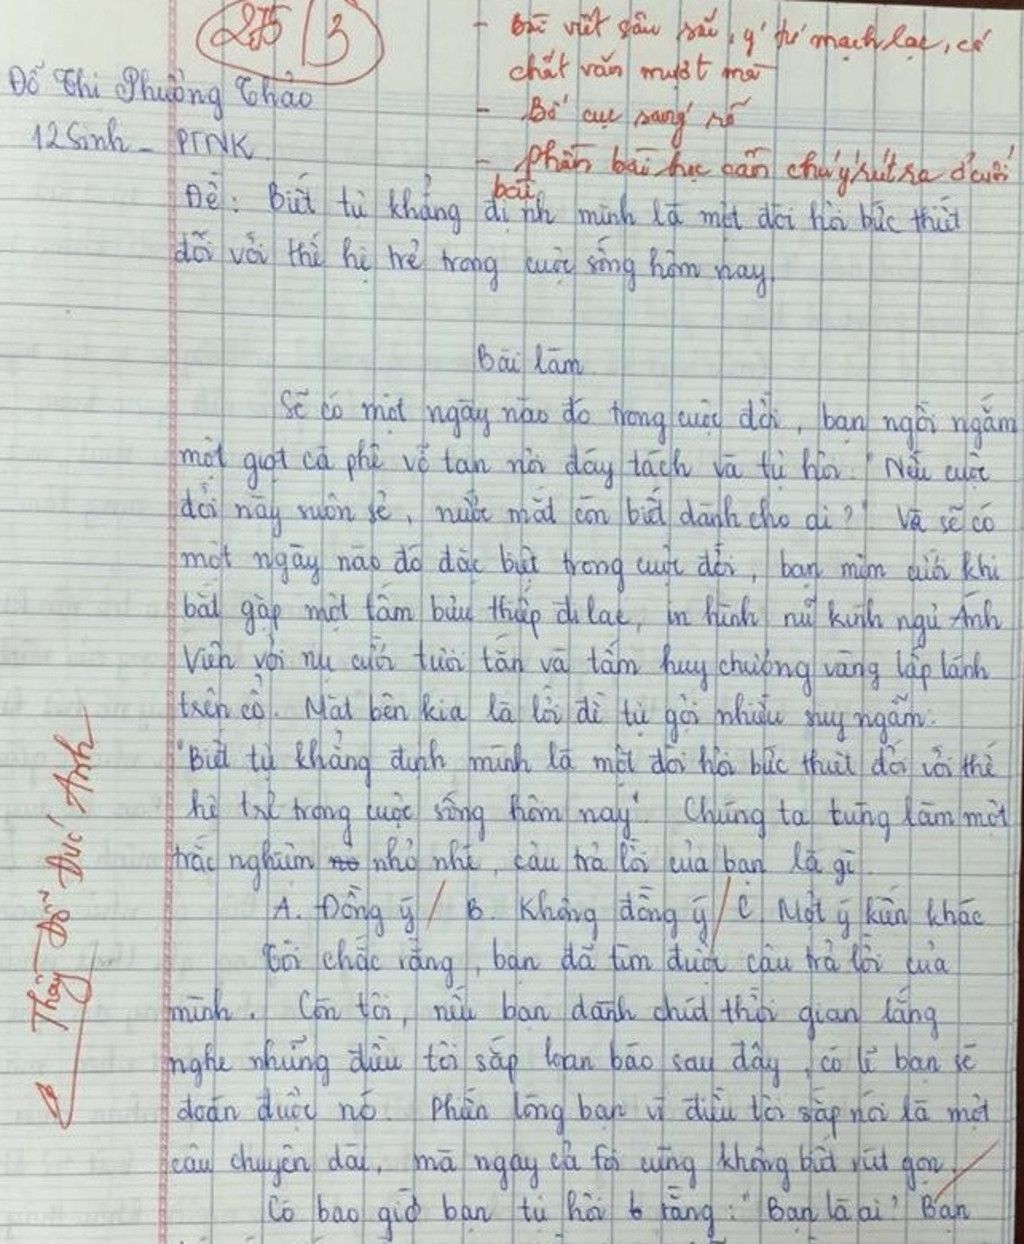 2,75 / 3
- Bài viết sâu sắc, ý tứ mạch lạc, có
chất văn mượt mà
- Bố cục sáng rõ
- Phần bài học cần chú ý rút ra ở cuối
bài
Đỗ Thị Phương Thảo
12 Sinh - PTNK
Đề: Biết tự khẳng định mình là một đòi hỏi bức thiết
đối với thế hệ trẻ trong cuộc sống hôm nay.
Bài làm
Sẽ có một ngày nào đó trong cuộc đời, bạn ngồi ngắm
một giọt cà phê vỡ tan nơi đáy tách và tự hỏi: "Nếu cuộc
đời này suôn sẻ, nước mắt còn biết dành cho ai?" Và sẽ có
một ngày nào đó đặc biệt trong cuộc đời, bạn mỉm cười khi
bắt gặp một tấm bưu thiếp đi lạc, in hình nữ kình ngư Ánh
Viên với nụ cười tươi tắn và tấm huy chương vàng lấp lánh
trên cổ. Mặt bên kia là lời đề tự gợi nhiều suy ngẫm:
"Biết tự khẳng định mình là một đòi hỏi bức thiết đối với thế
hệ trẻ trong cuộc sống hôm nay". Chúng ta từng làm một
trắc nghiệm nho nhỏ nhé, câu trả lời của bạn là gì
A. Đồng ý / B. Không đồng ý / C. Một ý kiến khác
Tôi chắc rằng, bạn đã tìm được câu trả lời của
mình. Còn tôi, nếu bạn dành chút thời gian lắng
nghe những điều tôi sắp loan báo sau đây, có lẽ bạn sẽ
đoán được nó. Phiền lòng bạn vì điều tôi sắp nói là một
câu chuyện dài, mà ngay cả tôi cũng không biết rút gọn.
Có bao giờ bạn tự hỏi rằng: "Bạn là ai? Bạn
Thầy Đỗ Đức Anh